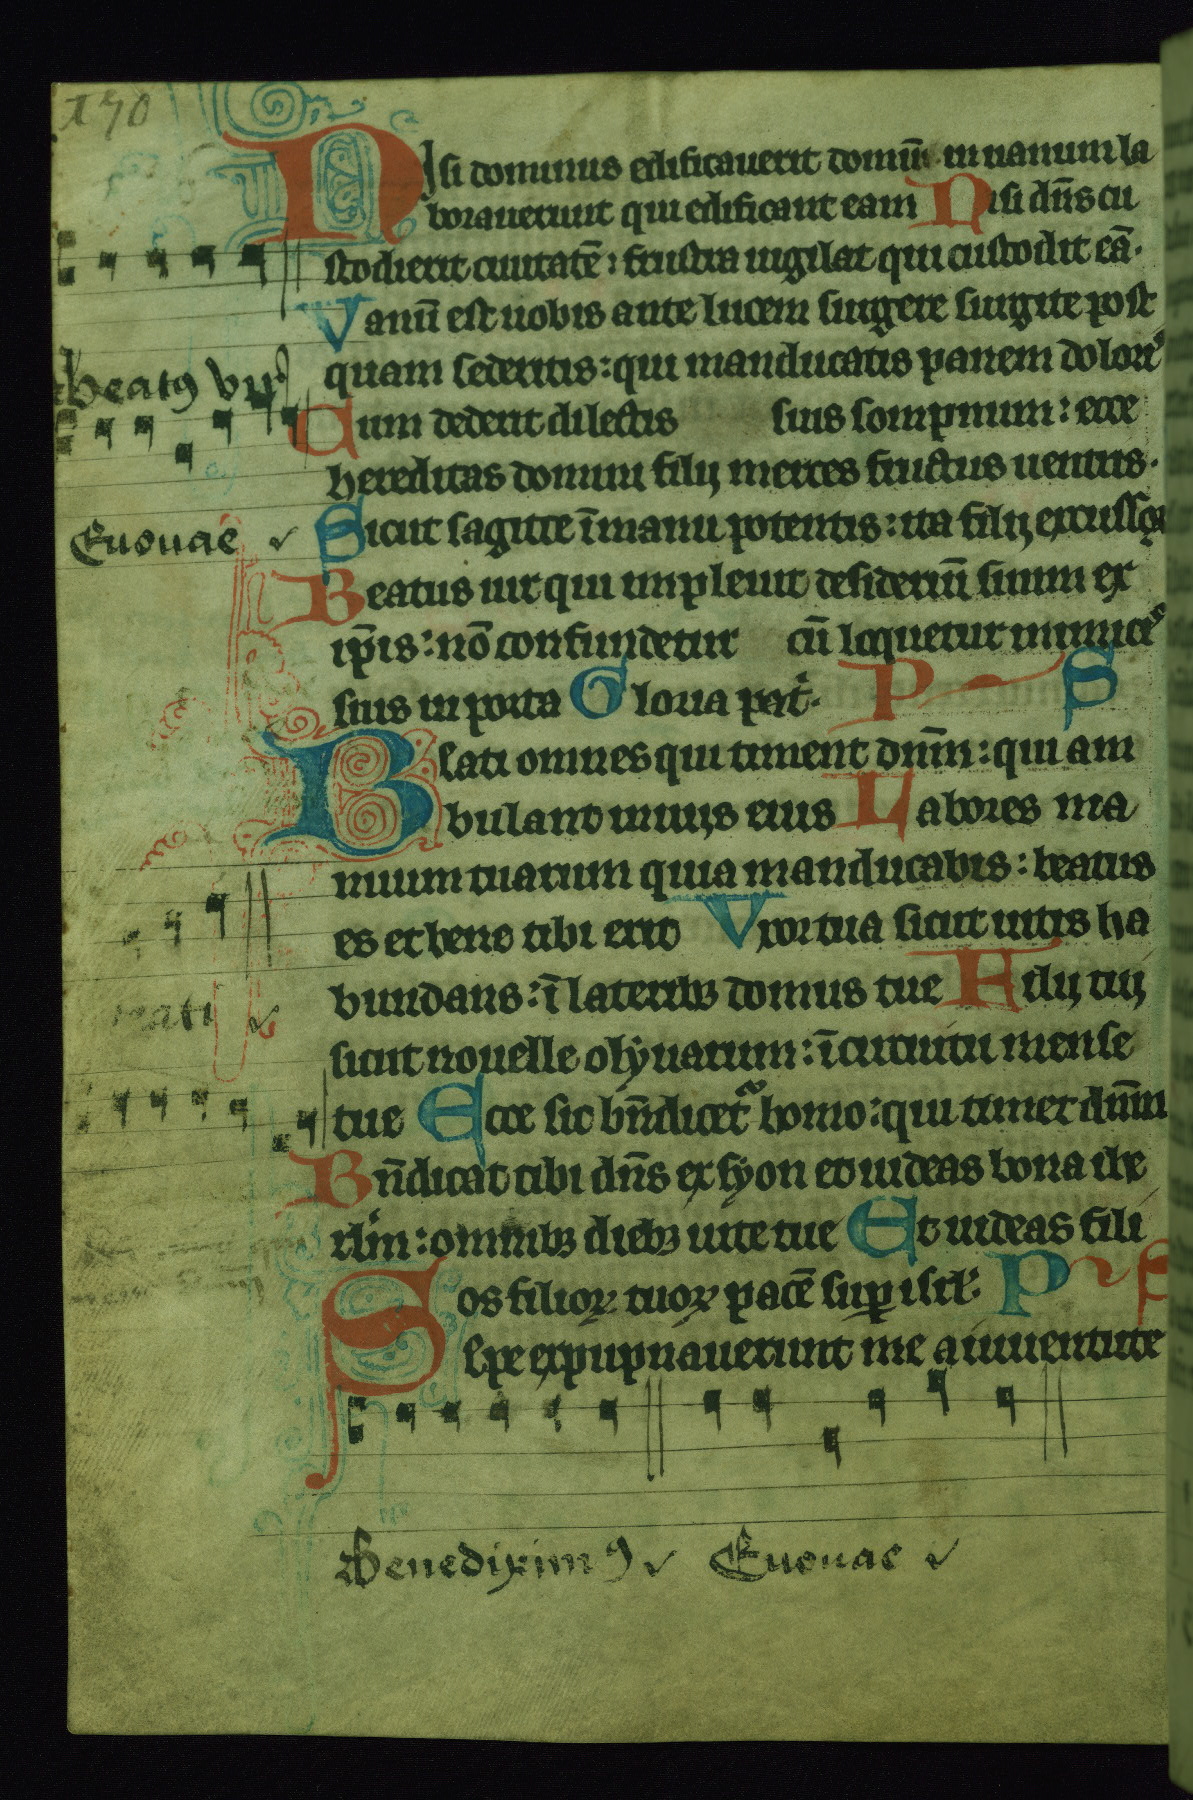 190
Nisi dominus edificauerit domū in uanum la
borauerunt qui edificant eam Nisi dn̄s cu
stodierit ciuitatē : frustra uigilat qui custodit eā.
Vanū est uobis ante lucem surgere surgite post
quam sederitis : qui manducatis panem dolorꝭ
beatꝰ vir
Cum dederit dilectis suis sompnum : ecce
hereditas domini filij merces fructus uentris.
Euouae
Sicut sagitte ī manu potentis : ita filij excussoꝝ
Beatus uir qui impleuit desideriū suum ex
ip̄is : nō confundetur cū loquetur inimicꝭ
suis in porta Gloria patͥ. P S
Beati omnes qui timent dn̄m : qui am
bulant in uijs eius Labores ma
nuum tuarum quia manducabis : beatus
es et bene tibi erit Vxor tua sicut uitis ha
bundans : ī lateribꝫ domus tue Filij tui
eati
sicut nouelle olyuarum : ī circuitu mense
tue Ecce sic bn̄dicetᷓ homo : qui timet dn̄m
Bn̄dicat tibi dn̄s ex syon et uideas bona ihe
rlm̄ : omnibꝫ diebꝫ uite tue Et uideas fili
os filioꝝ tuoꝝ pacē suꝑ isrl. P S
Sepe expupnauerunt me a iuuentute
Benediximꝰ Euouae